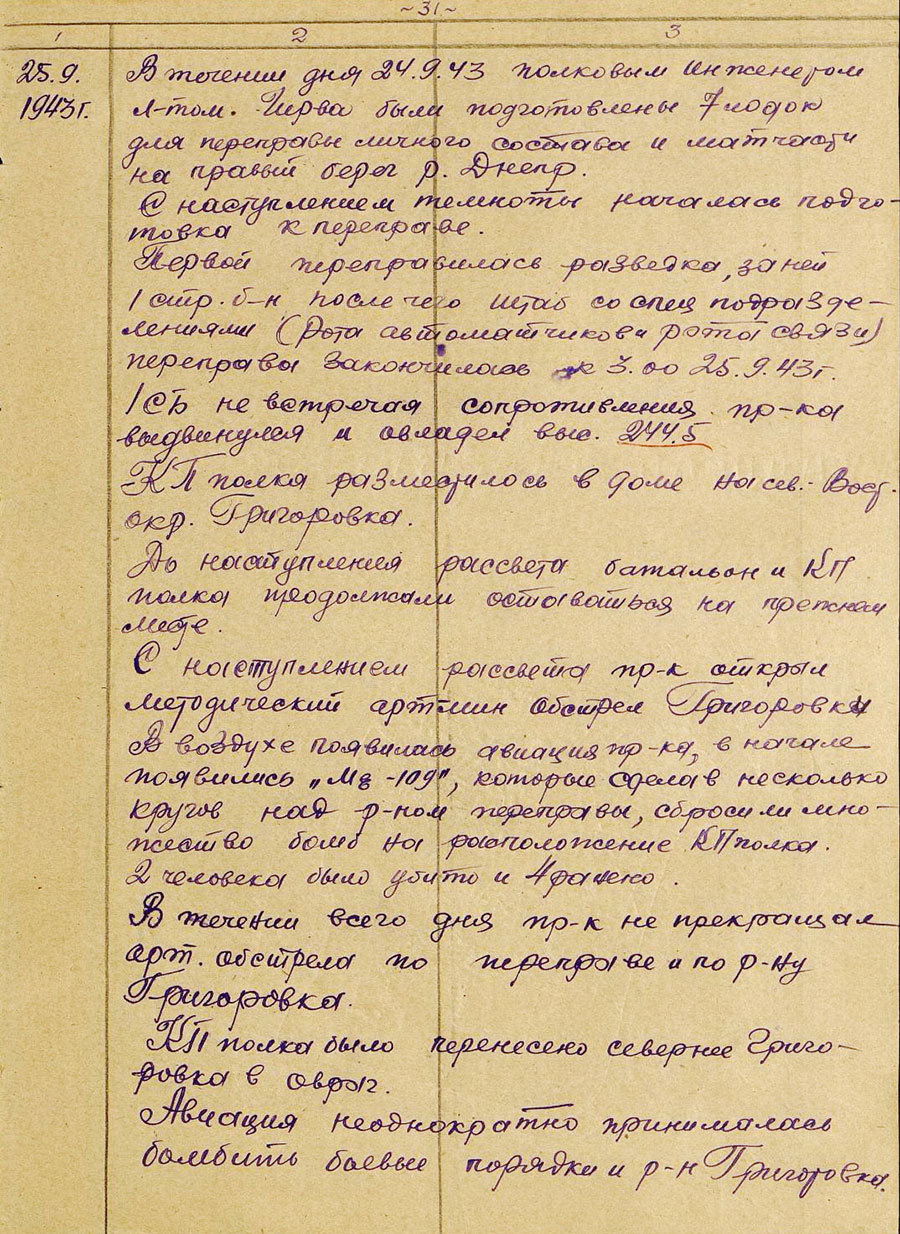 ~31~
1 2 3
25.9.
1943г.
В течении дня 24.9.43 полковым инженером
л-том. были подготовлены 7 лодок
для переправы личного состава и матчасти
на правый берег р. Днепр.
С наступлением темноты началась подго-
товка к переправе.
Первой переправилась разведка, за ней
1 стр. б-н после чего штаб со спец подразде-
лениями (Рота автоматчиков и рота связи)
переправа закончилась к 3.00 25.9.43г.
1 СБ не встречая сопротивления пр-ка
выдвинулся и овладел выс. 244.5
КП полка разместилось в доме на сев.-Вост.
окр. Григоровка.
До наступления рассвета батальон и КП
полка продолжали оставаться на прежнем
месте.
С наступлением рассвета пр-к открыл
методический артмин обстрел Григоровки
В воздухе появилась авиация пр-ка, в начале
появились „Мg-109", которые сделав несколько
кругов над р-ном переправы, сбросили мно-
жество бомб на расположение КП полка.
2 человека было убито и 4 ранено.
В течении всего дня пр-к не прекращал
арт. обстрела по переправе и по р-ну
Григоровка.
КП полка было перенесено севернее Григо-
ровка в овраг.
Авиация неоднократно принималась
бомбить боевые порядки и р-н Григоровка.